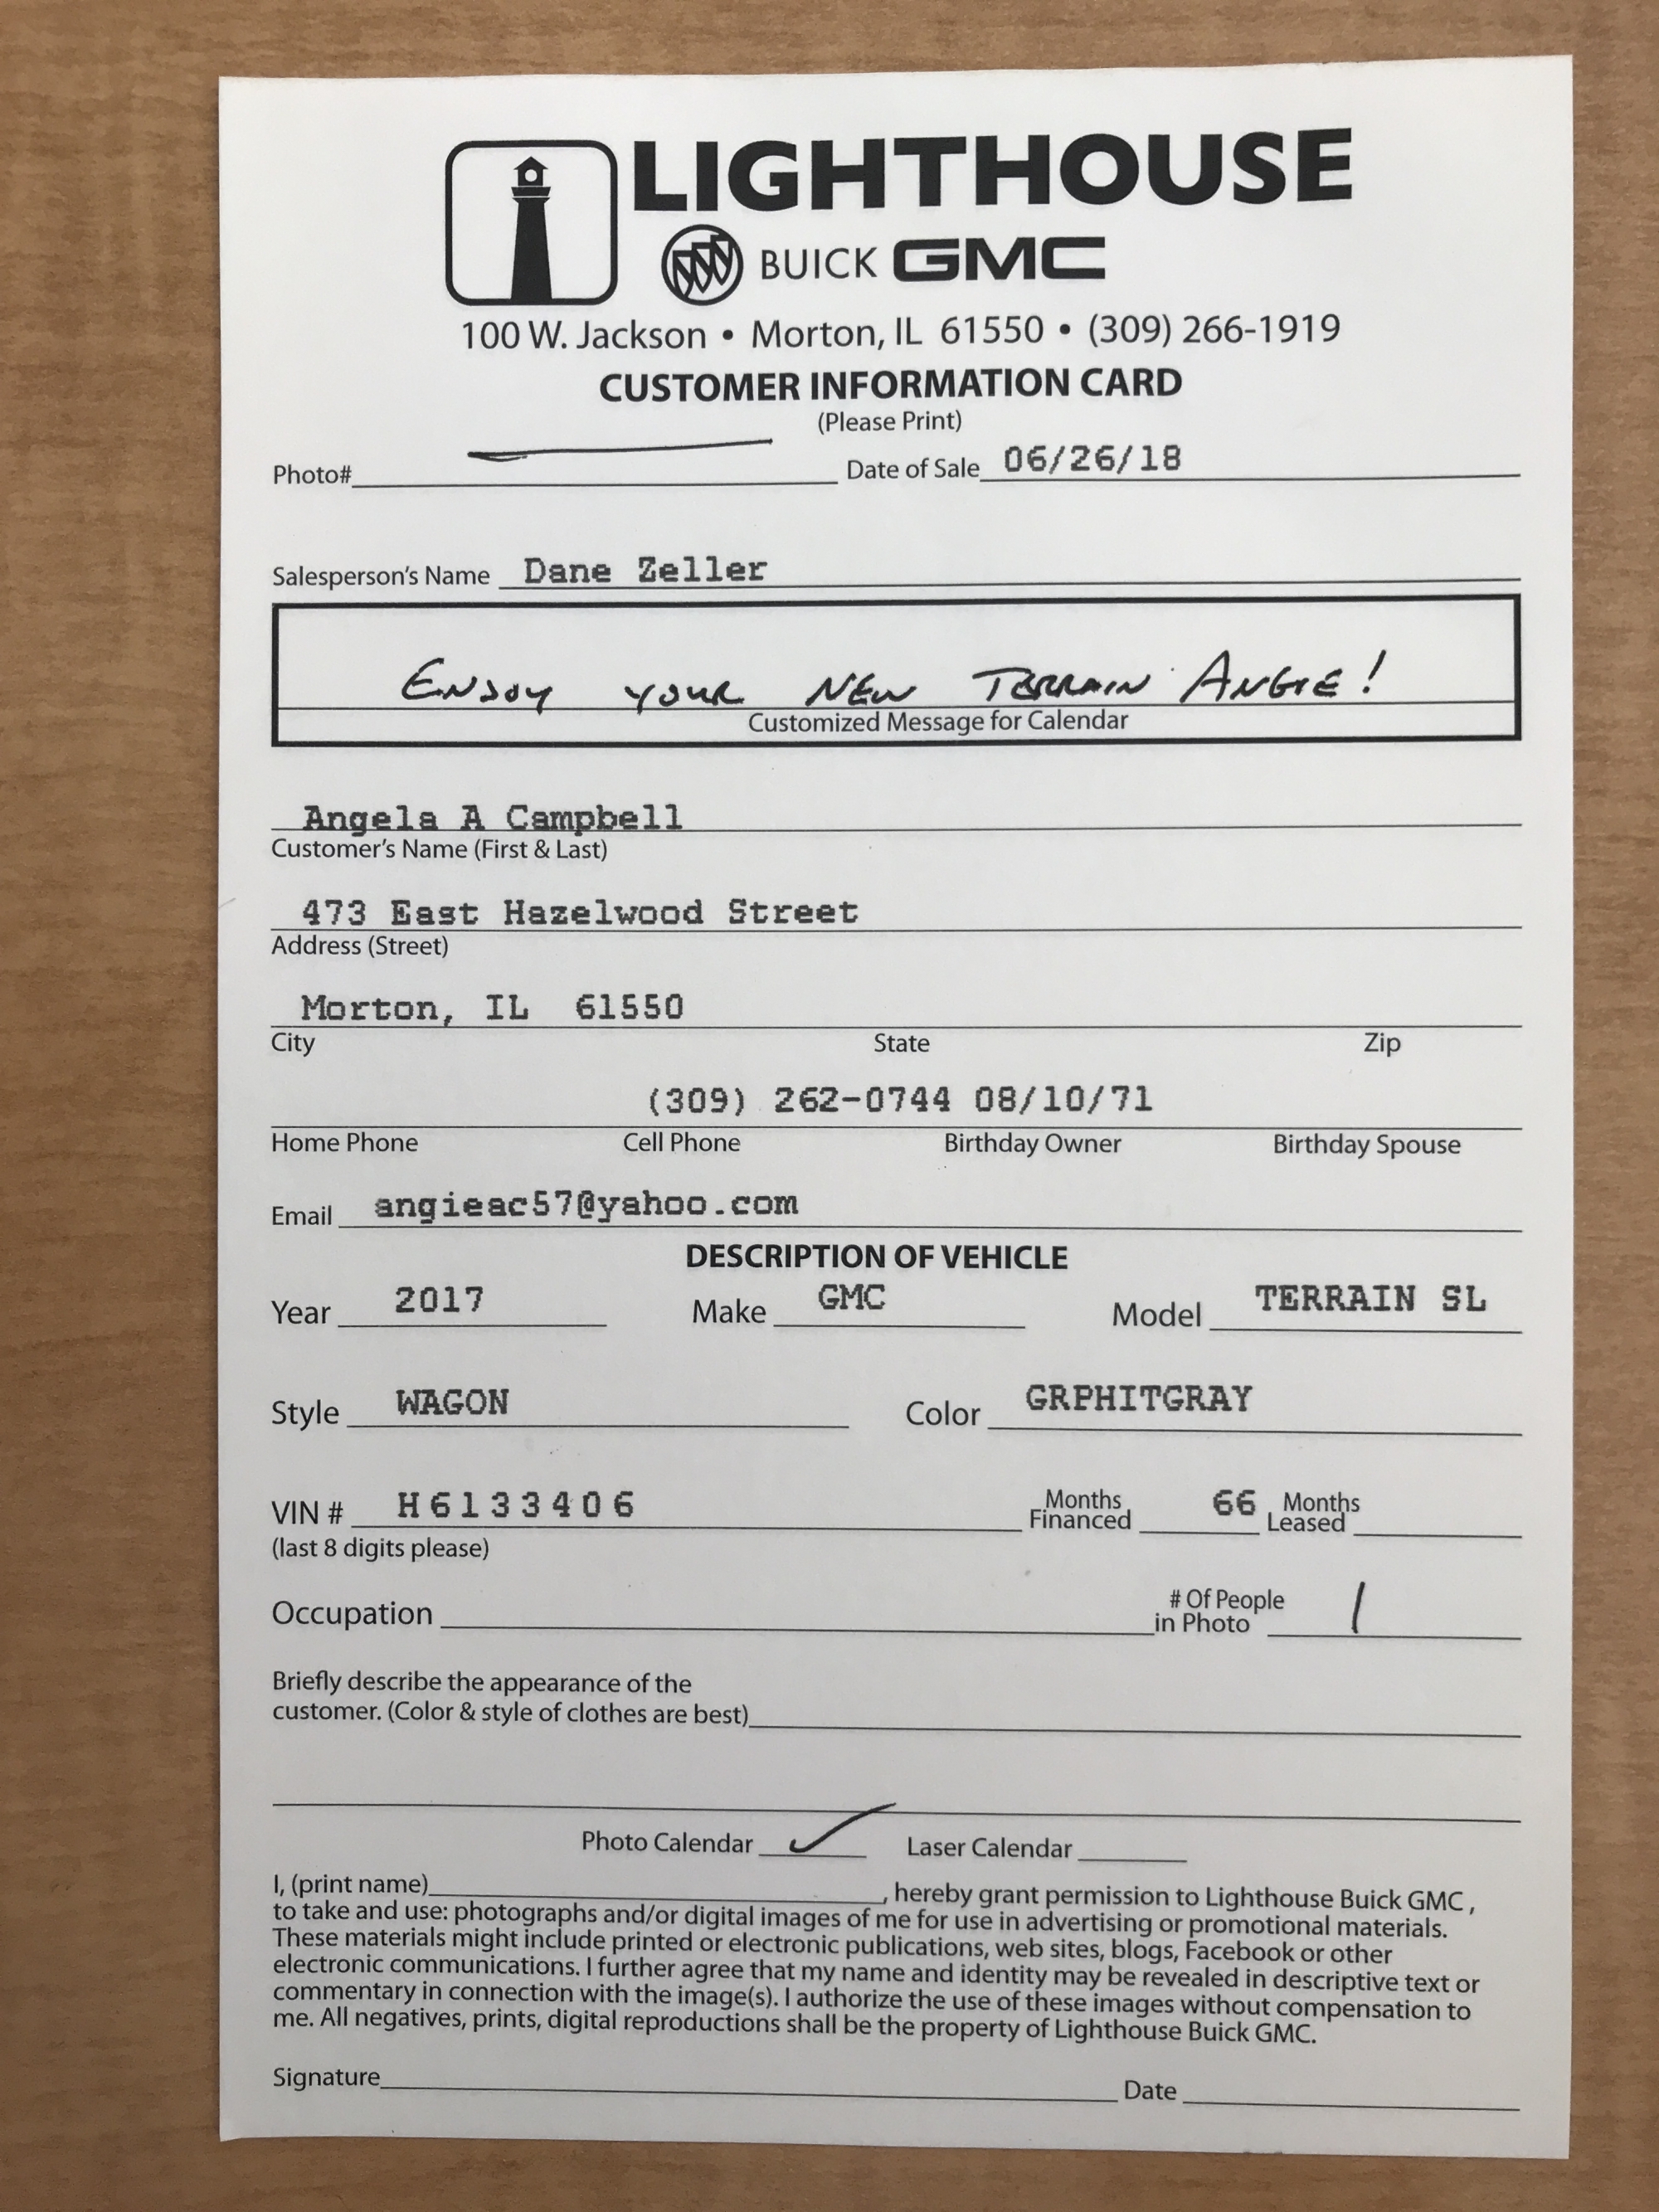 LIGHTHOUSE
BUICK GMC
100 W. Jackson • Morton, IL 61550 • (309) 266-1919
CUSTOMER INFORMATION CARD
(Please Print)
Photo# Date of Sale 06/26/18
Salesperson's Name Dane Zeller
ENJOY YOUR NEW TERRAIN ANGIE!
Customized Message for Calendar
Angela A Campbell
Customer's Name (First & Last)
473 East Hazelwood Street
Address (Street)
Morton, IL 61550
City State Zip
(309) 262-0744 08/10/71
Home Phone Cell Phone Birthday Owner Birthday Spouse
Email angieac57@yahoo.com
DESCRIPTION OF VEHICLE
Year 2017 Make GMC Model TERRAIN SL
Style WAGON Color GRPHITGRAY
VIN # H6133406 Months Financed 66 Months Leased
(last 8 digits please)
Occupation # Of People in Photo 1
Briefly describe the appearance of the
customer. (Color & style of clothes are best)
Photo Calendar ✓ Laser Calendar
I, (print name) , hereby grant permission to Lighthouse Buick GMC ,
to take and use: photographs and/or digital images of me for use in advertising or promotional materials.
These materials might include printed or electronic publications, web sites, blogs, Facebook or other
electronic communications. I further agree that my name and identity may be revealed in descriptive text or
commentary in connection with the image(s). I authorize the use of these images without compensation to
me. All negatives, prints, digital reproductions shall be the property of Lighthouse Buick GMC.
Signature Date